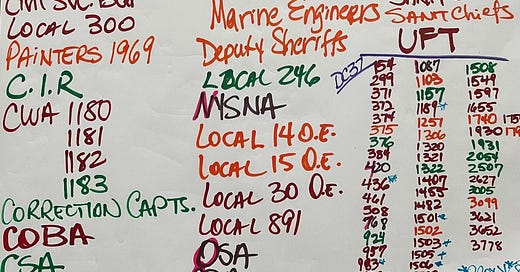 LOCAL 300
PAINTERS 1969
C.I.R
CWA 1180
1181
1182
1183
CORRECTION CAPTS.
COBA
CSA
Marine Engineers
Deputy Sheriffs
LOCAL 246
NYSNA
LOCAL 14 O.E.
LOCAL 15 O.E.
LOCAL 30 O.E.
LOCAL 891
OSA
SANIT Chiefs
UFT
DC37
154 1087 1508
299 1103 1549
371 1157 1597
372 1189* 1655
374 1257 1740
375 1306 1930
376 1320 1931
384 1321 2054
420 1322 2507
436* 1407 2627
461 1455 3005
508 1482 3099
768 1501* 3621
924 1502 3652
957 1503* 3778
983* 1505*
1506